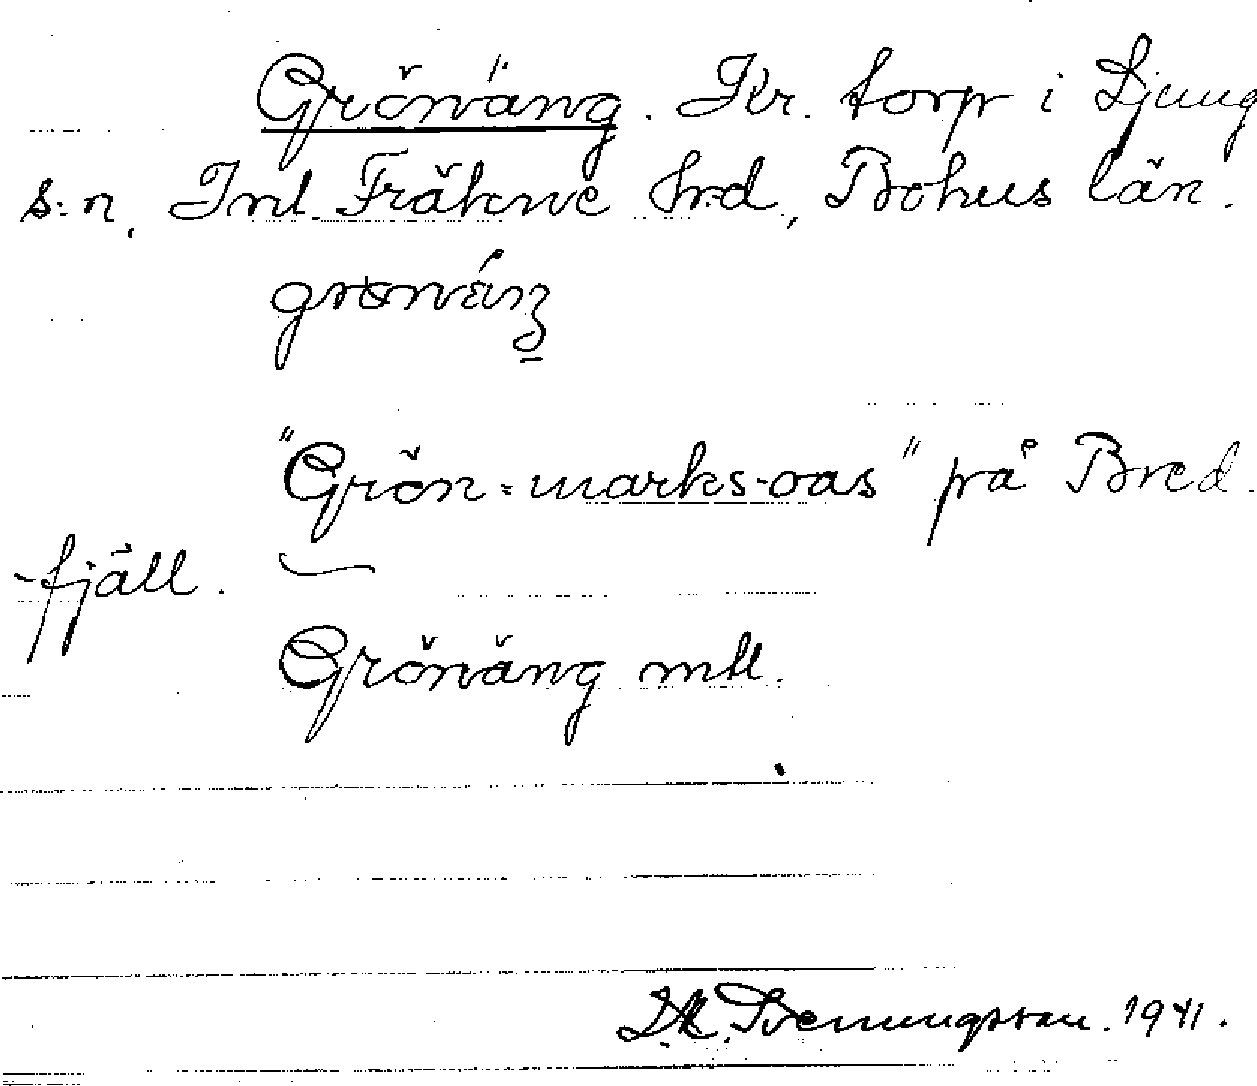 Grönäng. Kr. torp i Ljung
s:n, Inl. Fräkne hrd, Bohus län.
"Grön-marks-oas" på Bred-
-fjäll.
Grönäng mtl.
Svenungsson. 1941.